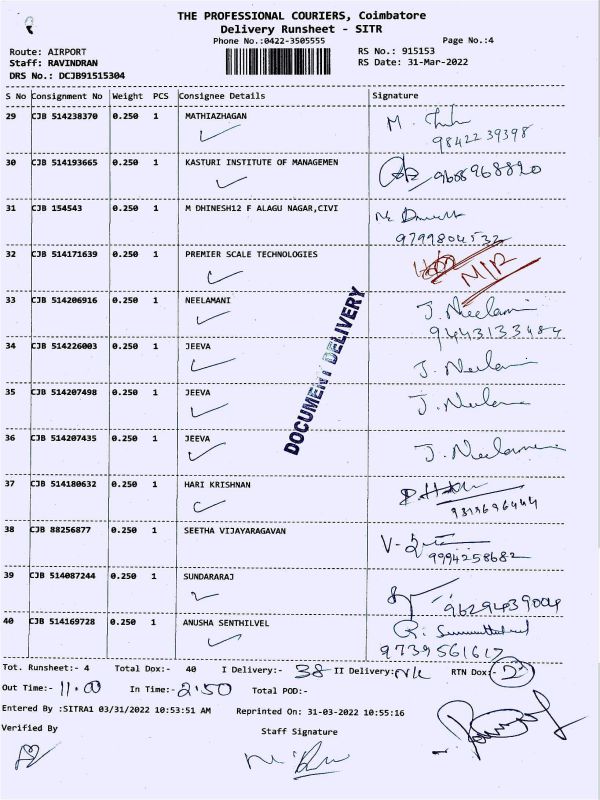 THE PROFESSIONAL COURIERS, Coimbatore
Delivery Runsheet - SITR
Phone No.:0422-3505555 Page No.:4
Route: AIRPORT RS No.: 915153
Staff: RAVINDRAN RS Date: 31-Mar-2022
DRS No.: DCJB91515304
S No Consignment No Weight PCS Consignee Details Signature
29 CJB 514238370 0.250 1 MATHIAZHAGAN
9842239398
30 CJB 514193665 0.250 1 KASTURI INSTITUTE OF MANAGEMEN 9688968820
31 CJB 154543 0.250 1 M DHINESH12 F ALAGU NAGAR,CIVI
9799804532
32 CJB 514171639 0.250 1 PREMIER SCALE TECHNOLOGIES
N/R
33 CJB 514206916 0.250 1 NEELAMANI J. Neelamani
9443133484
34 CJB 514226003 0.250 1 JEEVA J. Neelamani
35 CJB 514207498 0.250 1 JEEVA J. Neelamani
36 CJB 514207435 0.250 1 JEEVA J. Neelamani
DOCUMENT DELIVERY
37 CJB 514180632 0.250 1 HARI KRISHNAN
38 CJB 88256877 0.250 1 SEETHA VIJAYARAGAVAN
9994258682
39 CJB 514087244 0.250 1 SUNDARARAJ
9629439004
40 CJB 514169728 0.250 1 ANUSHA SENTHILVEL
9739561617
Tot. Runsheet:- 4 Total Dox:- 40 I Delivery:- 38 II Delivery:- NR RTN Dox:- 2
Out Time:- 11.00 In Time:- 2.50 Total POD:-
Entered By :SITRA1 03/31/2022 10:53:51 AM Reprinted On: 31-03-2022 10:55:16
Verified By Staff Signature